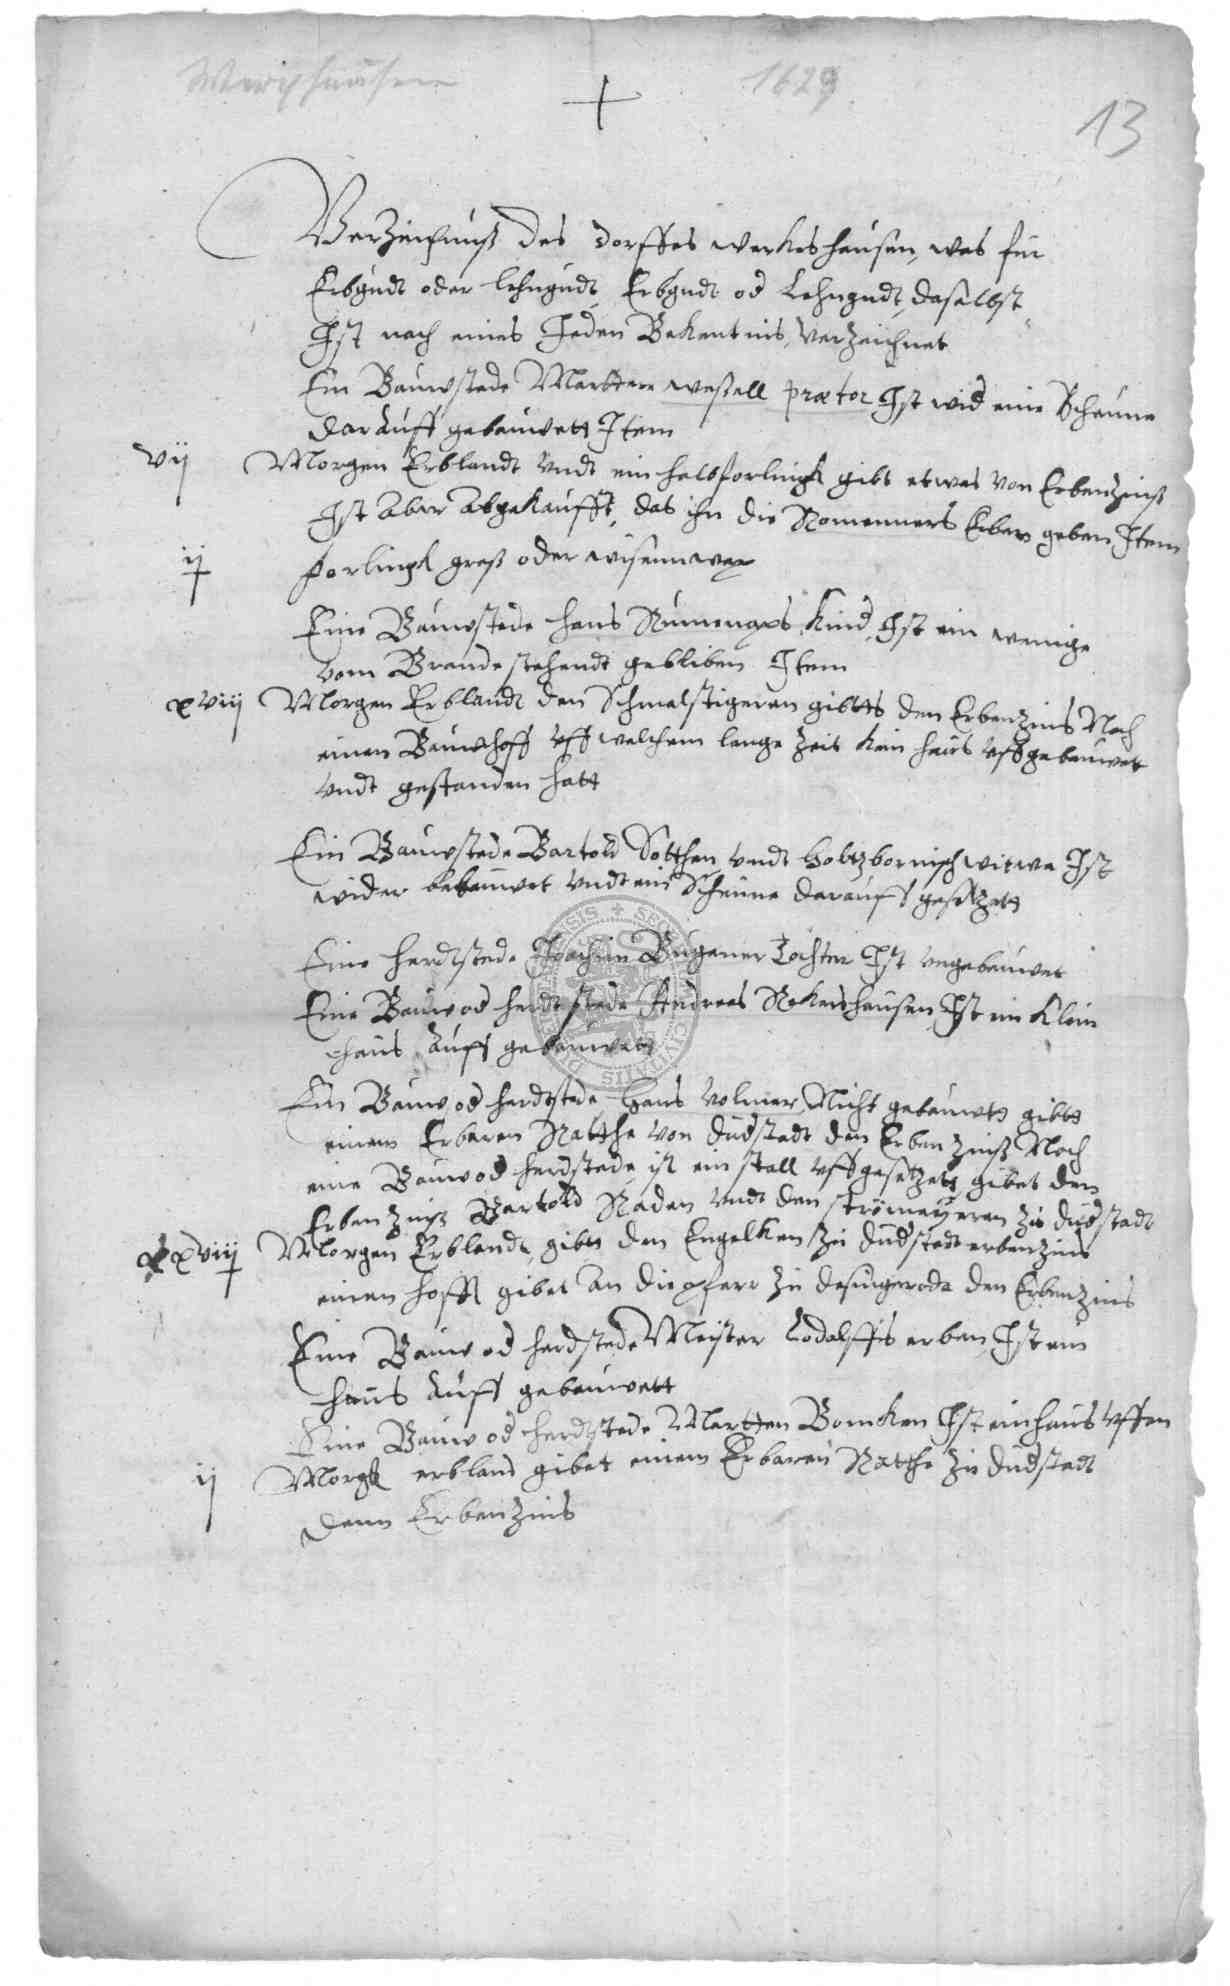 Werxhausen 1629
13
Verzeichnuß des dorffes werkeshausen, was für
Erbgudt oder lehngudt, Erbgudt od Lehngudt, daselbst
Ist nach eines Jeden Bekentnis, Verzeichnet
Ein Bauwstede Martten weßall prætor Ist wid eine Scheune
darauff gebauwett Item
vij Morgen Erblandt vndt ein halb forlingk gibt etwas von Erbenzinß
Ist aber abgekaufft, das ihn die Nomenners Erben geben Item
ij forlingk greß oder wisennwax
Eine Bauwstede hans Kind Ist ein wenige
vom Brande stehendt gebliben Item
xviij Morgen Erblandt den Schmalstigeren gibtts den Erbenzins Noch
einen Bauwhoff vff welchem lange Zeit kein haus vffgebauwet
vndt gestanden hatt
Ein Bauwstede Bartold Sotthen vndt holtzbornisch witwe Ist
wider bebauwet vndt ein Scheune darauff gesetzett
Eine herdtstede Joachim Tochter Ist vngebauwet
Eine Bauw od herdtstede Andreas Rekershausen Ist ein Klein
haus auff gebauwett
Ein Bauw od herdtstede Hans Volmer Nicht gebauwett gibtt
einem Erbaren Ratthe von dudstadt den Erbenzinß Noch
eine Bauw od herdstede ist ein stall vffgesetzett gibet den
Erbenzinß Bartold Raden vndt den strömeyeren zu dudstadt
xxviij Morgen Erblandt, gibtt den Engelken zu dudstadt erbenzins
einen hoff gibet an die pfarr zu desingerode den Erbenzins
Eine Bauw od herdstede Meister Lodolffs erben Ist ein
haus auff gebauwett
Eine Bauw od herdtstede Martten Bomken Ist ein haus vffen
ij Morgk erbland gibet einem Erbaren Ratthe zu dudstadt
denn Erbenzins